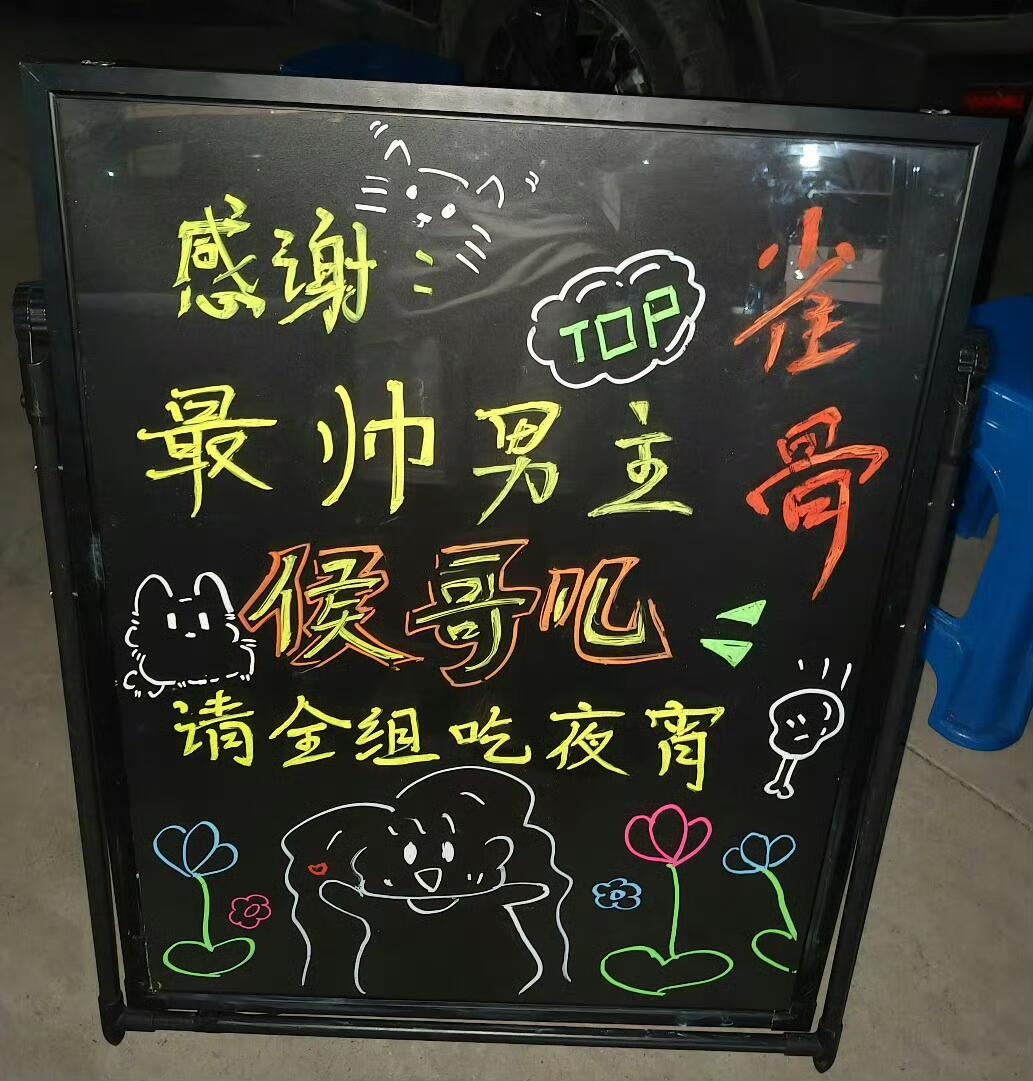 感谢:
TOP
最帅男主
侯哥吧
请全组吃夜宵
雀骨